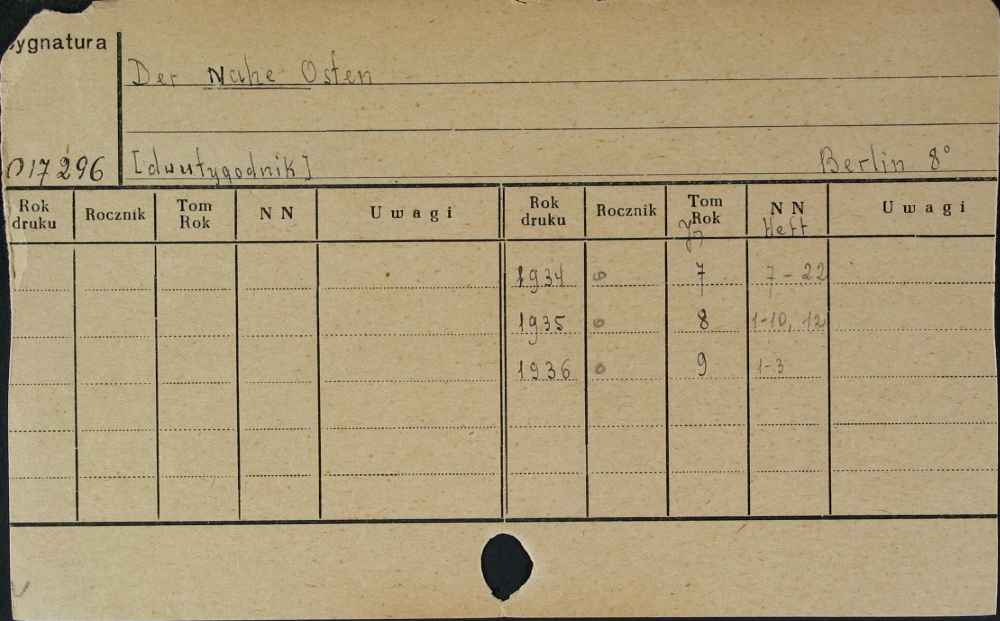 ygnatura
Der Nahe Osten
017296 [dwutygodnik] Berlin 8°
Rok druku Rocznik Tom Rok NN Uwagi Rok druku Rocznik Tom Rok NN Uwagi
Jg Heft
1934 0 7 7-22
1935 0 8 1-10, 12
1936 0 9 1-3